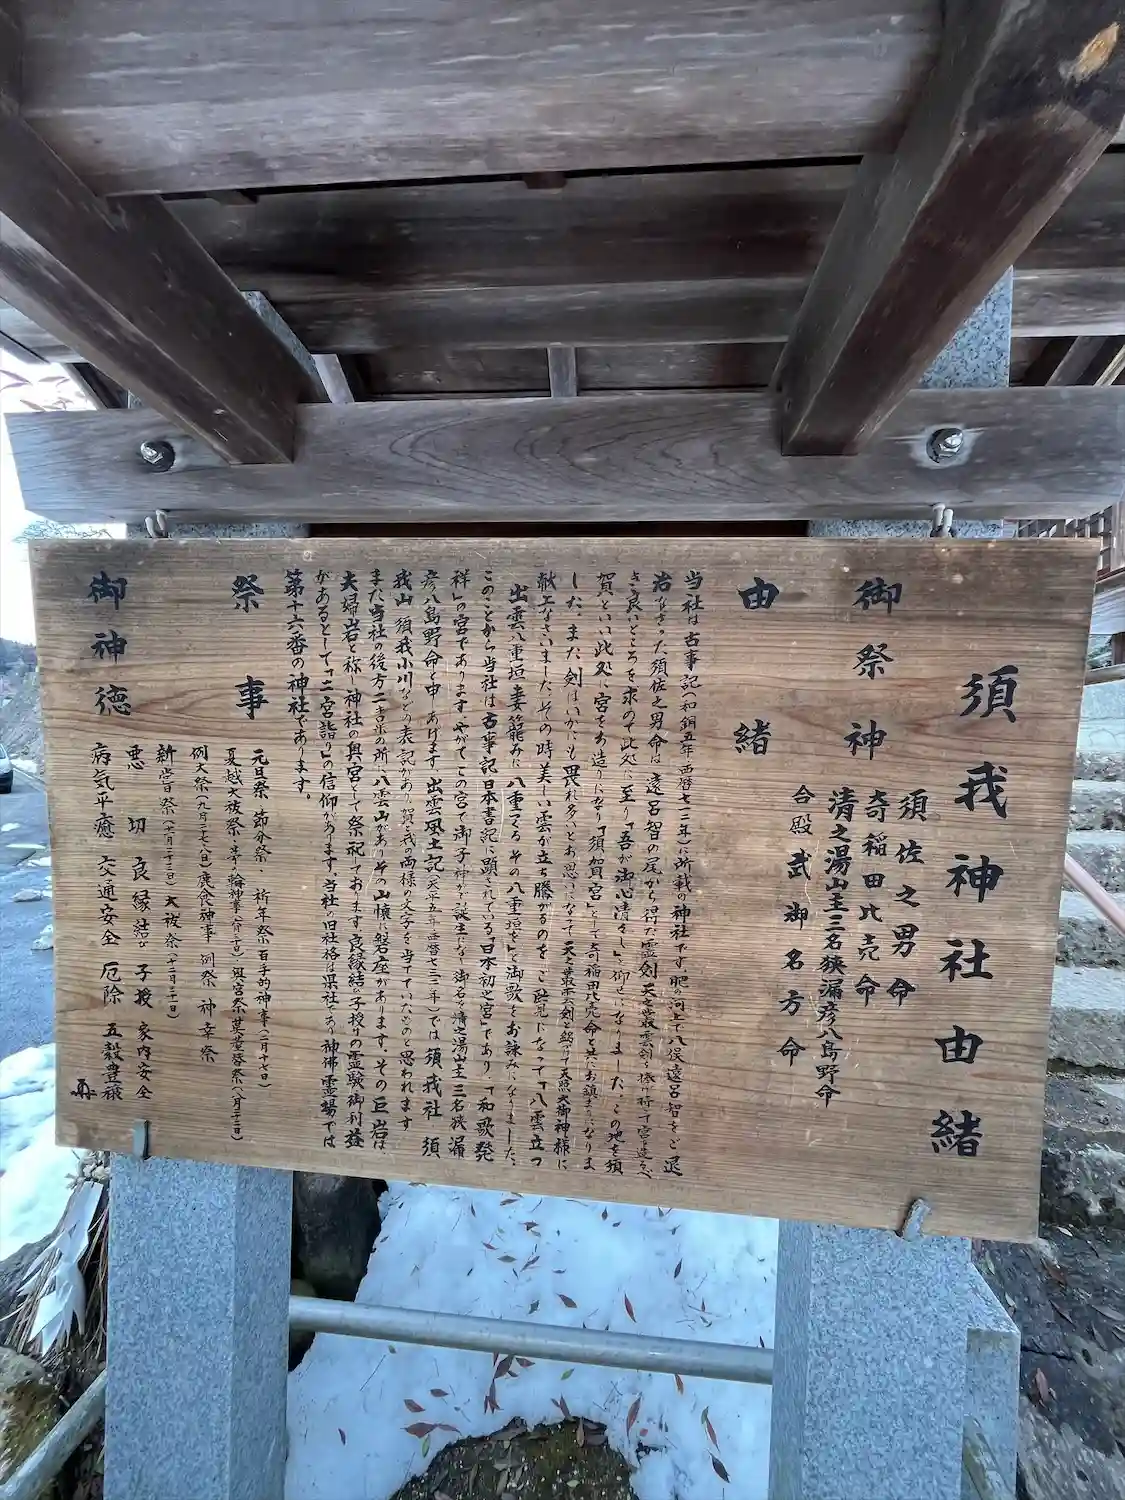 須我神社由緒
御祭神
須佐之男命
奇稲田比売命
清之湯山主三名狭漏彦八島野命
合殿 武御名方命
由緒
当社は古事記(和銅五年・西暦七一二年)に所載の神社です。肥の河上で八俣遠呂智をご退
治なさった須佐之男命は、遠呂智の尾から得た霊剣天之叢雲剣を捧げ持って宮を造るべ
き良いところを求めて此処に至り「吾が御心清々し」と仰せになりました。この地を須
賀といい此処に宮をお造りになり「須賀宮」として奇稲田比売命と共にお鎮まりになりま
した。また、剣はいかにも畏れ多いとお思いになって天之叢雲剣と銘して天照大御神様に
献上なさいました。その時美しい雲が立ち騰がるのをご覧になって「八雲立つ
出雲八重垣 妻籠みに 八重つくる その八重垣を」と御歌をお詠みになりました。
このことから当社は古事記・日本書記に顕されている「日本初之宮」であり、「和歌発
祥」の宮であります。やがてこの宮で御子神が誕生になり御名を清之湯山主三名狭漏
彦八島野命と申しあげます。出雲風土記(天平五年・西暦七三三年)では 須我社 須
我山 須我小川などの表記があり、賀と我の両様の文字を当てていたものと思われます
また当社の後方二粁米の所に八雲山がありその山懐に磐座があります。その巨岩は
夫婦岩と称し神社の奥宮として祭祀ております。良縁結び子授りの霊験御利益
があるとして「二宮詣り」の信仰があります。当社の旧社格は県社であり神佛霊場では
第十六番の神社であります。
祭事
元旦祭・節分祭・祈年祭百手的神事(二月十七日)
夏越大祓祭・茅の輪神事(六月三十日)奥宮祭茣蓙替祭(八月二十二日)
例大祭(九月二十七、八日)鹿食神事 例祭 神幸祭
新嘗祭(十一月二十三日)大祓祭(十二月三十一日)
御神徳
悪切 良縁結び 子授 家内安全
病気平癒 交通安全 厄除 五穀豊穣